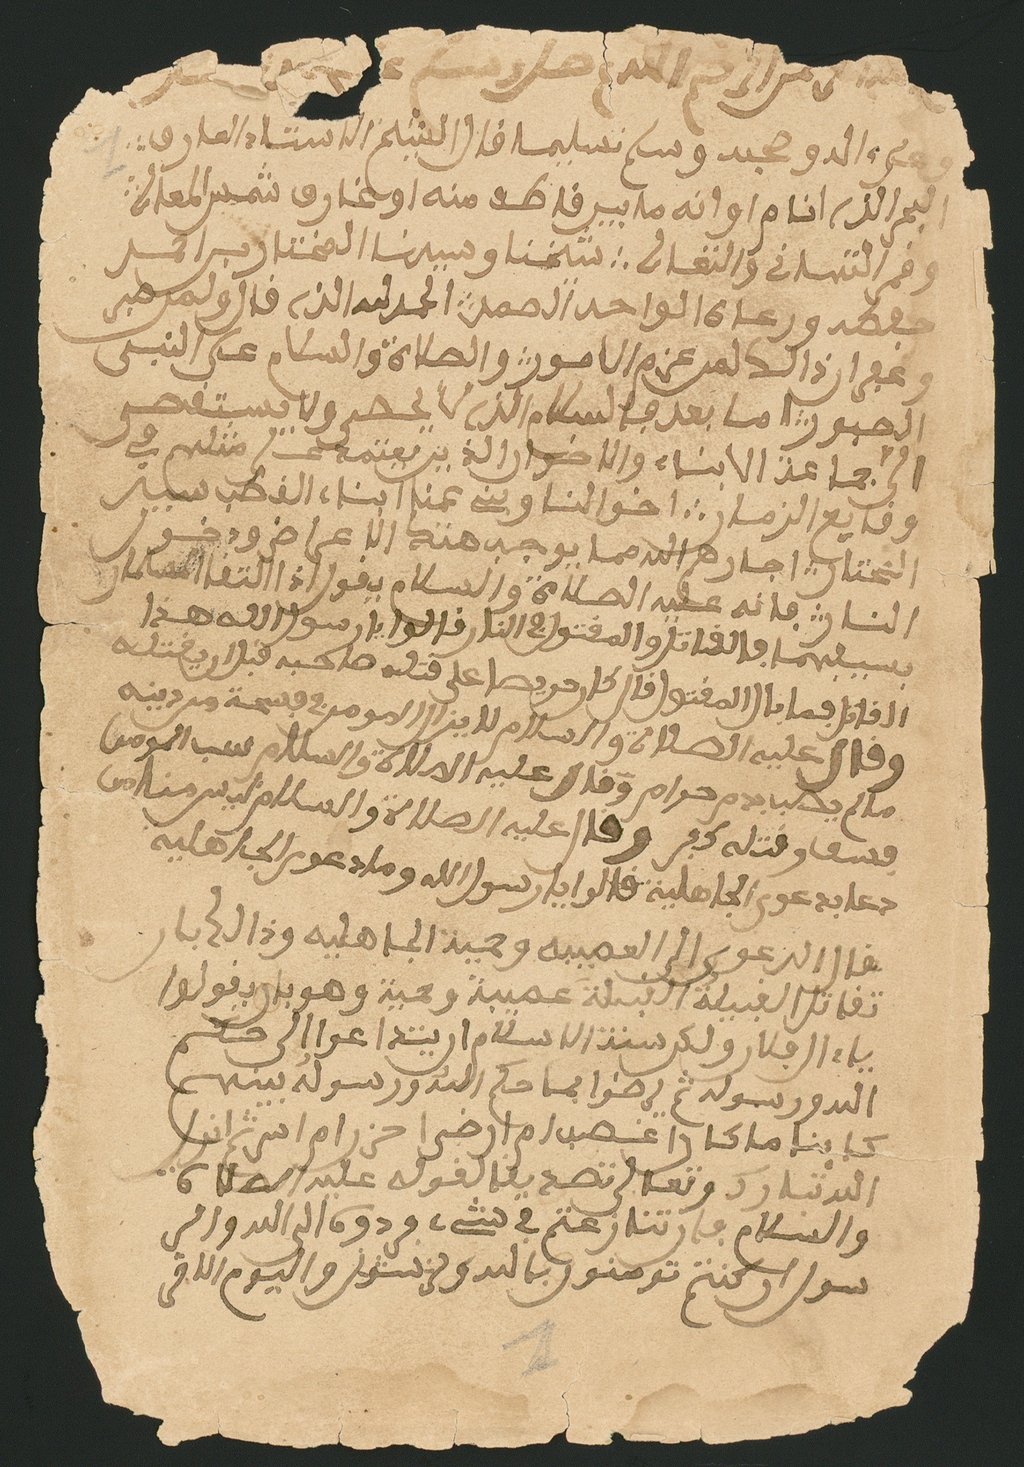 الرحمن الرحيم اللهم صل وسلم على
وعلى ءاله وصحبه وسلم تسليما قال الشيخ الاستاذ العارف
البحر الذي اوانه ما بين قاطف منه او غارف شمس المعالى
وقمر التهانى والتعالى شيخنا وسيدنا المختار بن احمد
حفظه ورعاه الواحد الصمد الحمد لله الذي قال ولمن صبر
وغفر ان ذالك لمن عزم الامور والصلاة والسلام على النبى
الصبور اما بعد فالسلام الذي لا يحصر ولا يستقصر
الى جماعة الابناء والاخوان الذين يعتمد على مثلهم في
وقايع الزمان اخوالنا وبني عمنا ابناء القطب سيد
المختار اجارهم الله مما يوجب هتك الاعراض ودخول
النار فانه عليه الصلاة والسلام يقول اذا التقا المسلمان
بسيفيهما فالقاتل والمقتول في النار قالوا يا رسول الله هذا
القاتل فما بال المقتول قال كان حريصا على قتل صاحبه قبل ان يقتله
وقال عليه الصلاة والسلام لا يزال المومن في فسحة من دينه
ما لم يصب دم حرام وقال عليه الصلاة والسلام سب المومن
فسق وقتله كفر وقال عليه الصلاة والسلام ليس منا من
دعا بدعوى الجاهلية قالوا يا رسول الله وما دعوى الجاهلية
قال الدعوى الى العصبية وحمية الجاهلية وذالك بان
تقاتل القبيلة القبيلة عصبية وحمية وهو بان يقولوا
يا ءال فلان ولكن سنة الاسلام ان يتداعوا الى حكم
الله ورسوله ثم يرضوا بما حكم الله ورسوله بينهم
كاينا ما كان اغضب ام ارضى احزن ام اسر ثم انزل
الله تبارك وتعالى تصديقا لقوله عليه الصلاة
والسلام فان تنازعتم في شيء فردوه الى الله والر
سول ان كنتم تومنون بالله واليوم الاخر
1